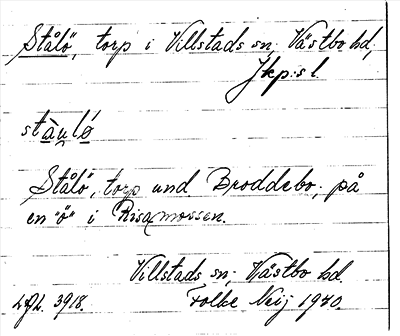 Stålö, torp i Villstads sn, Västbo hd,
Jkp:s l.
stàu̯lǿ
Stålö, torp und Broddebo, på
en "ö" i Risamossen.
Villstads sn, Västbo hd.
3918. Folke Neij 1940.